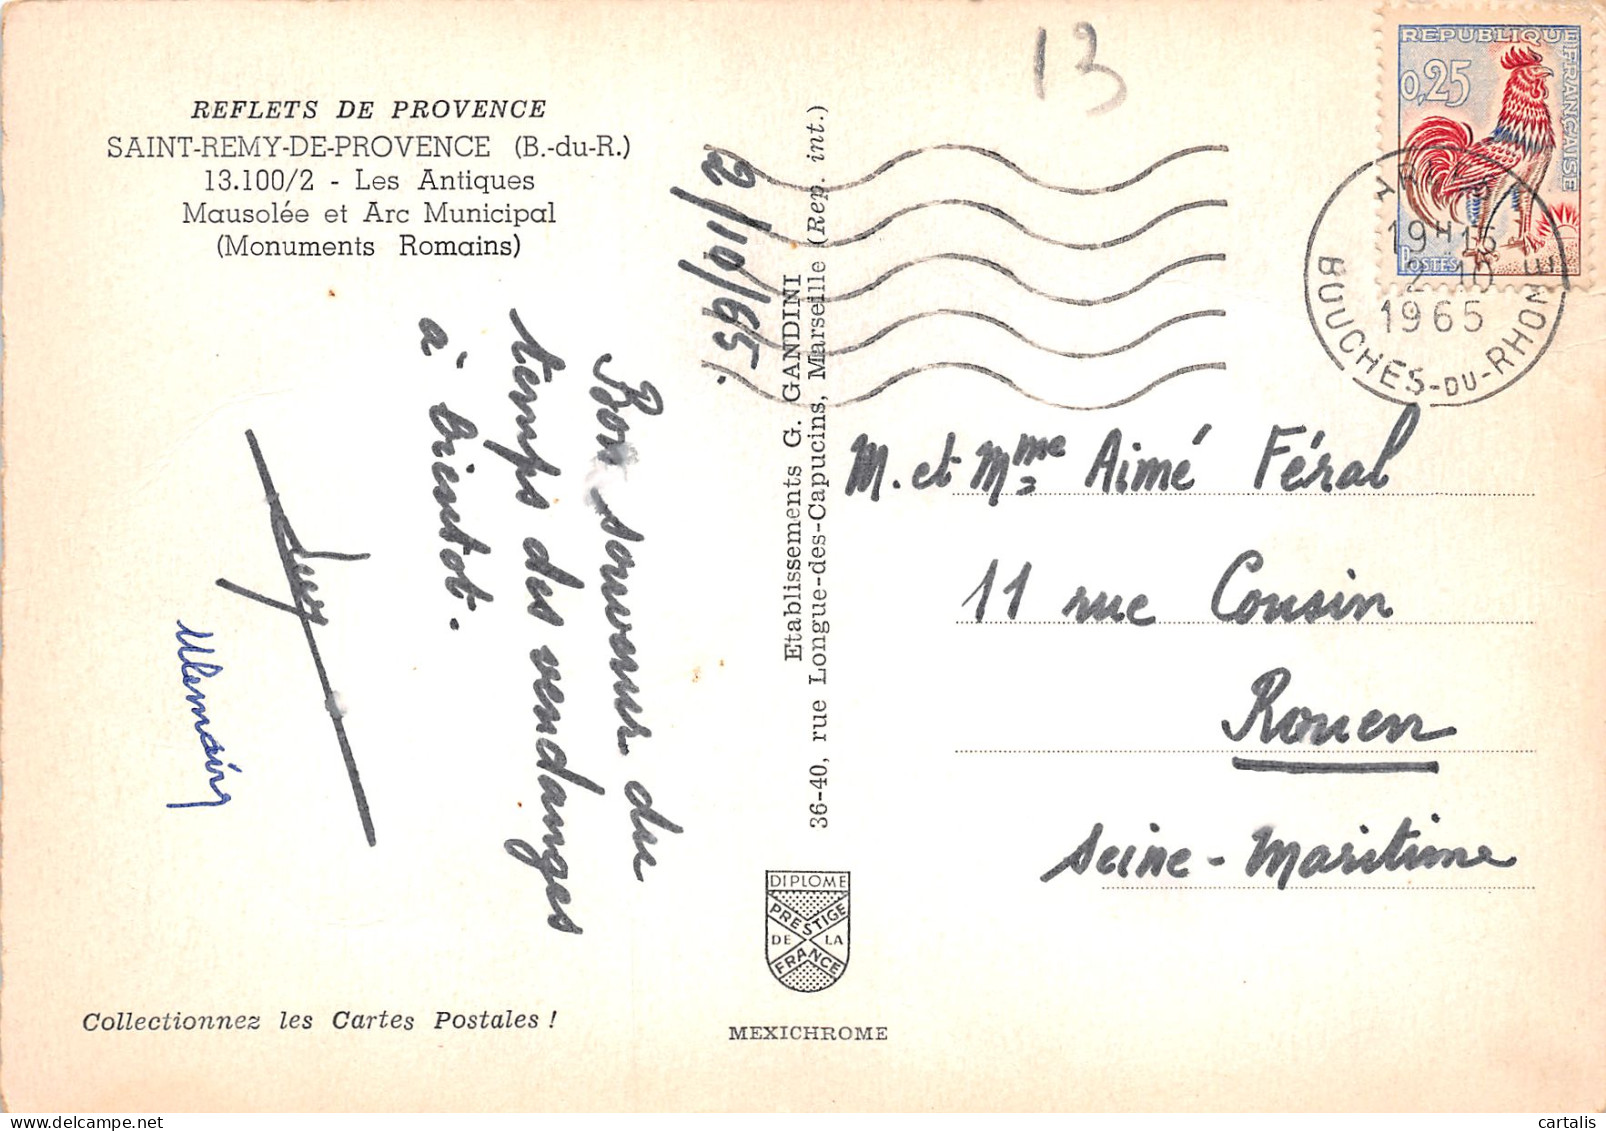 REFLETS DE PROVENCE
SAINT-REMY-DE-PROVENCE (B.-du-R.)
13.100/2 - Les Antiques
Mausolée et Arc Municipal
(Monuments Romains)
2/10/65.
Bon souvenir du
temps des vendanges
à bientot.
Collectionnez les Cartes Postales !
Etablissements G. GANDINI
36-40, rue Longue-des-Capucins, Marseille (Rep. int.)
DIPLOME
PRESTIGE
DE LA
FRANCE
MEXICHROME
13
REPUBLIQUE FRANÇAISE
0,25
POSTES
19H15
2-10
1965
BOUCHES-DU-RHONE
M. et Mme Aimé Féral
11 rue Cousin
Rouen
Seine-Maritime
cartalis delcampe.net